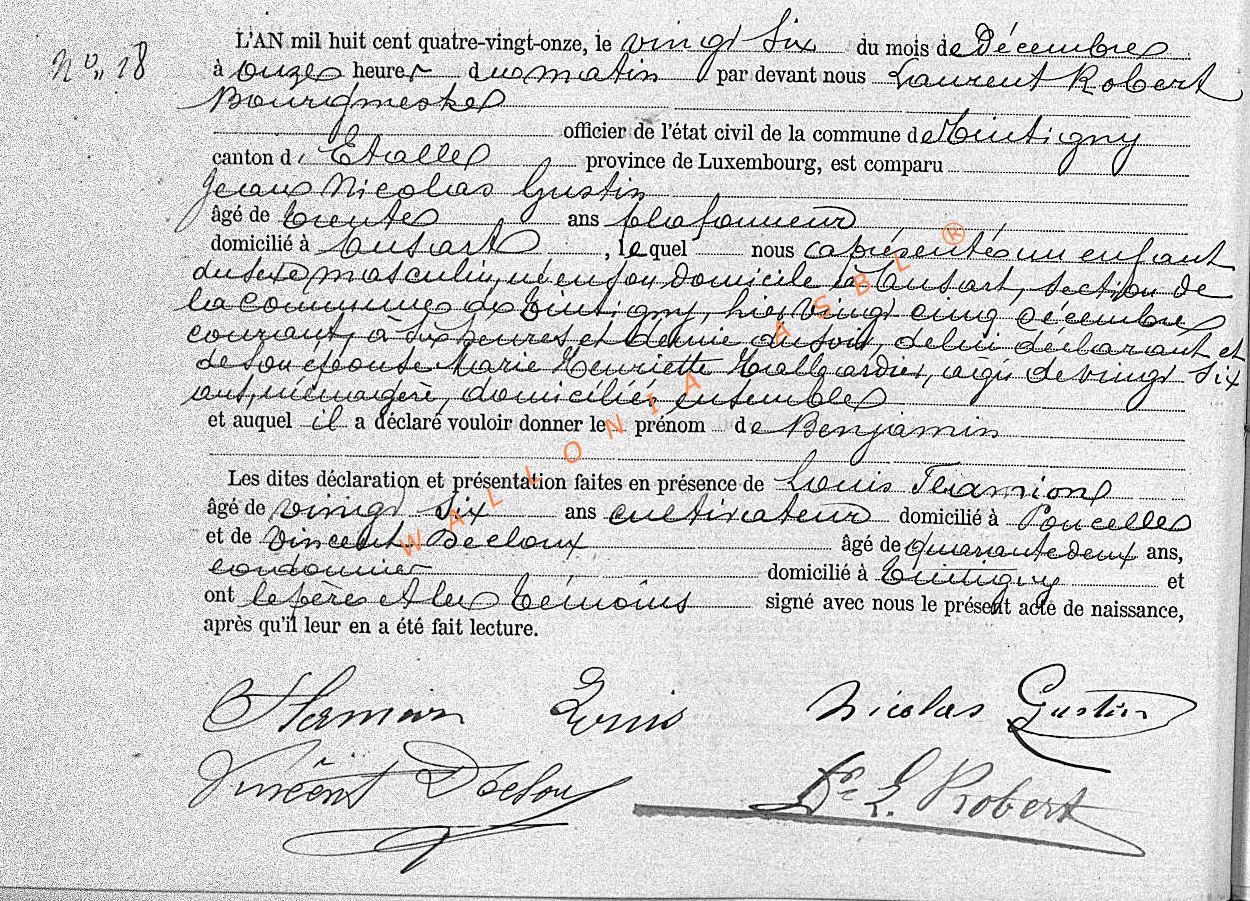 N° 18
L'AN mil huit cent quatre-vingt-onze, le vingt six du mois de Décembre
à onze heures du matin par devant nous Laurent Robert
Bourgmestre
officier de l'état civil de la commune de Tintigny
canton d'Etalle province de Luxembourg, est comparu
Jean Nicolas Gustin
âgé de trente ans plafonneur
domicilié à Ansart, lequel nous a présenté un enfant
du sexe masculin, né en son domicile à Ansart, section de
la commune de Tintigny, hier vingt cinq décembre
courant, à six heures et demie du soir, de lui déclarant et
de son épouse Marie Henriette agée de vingt six
ans, ménagère, domiciliés ensemble
et auquel il a déclaré vouloir donner le prénom de Benjamin
Les dites déclaration et présentation faites en présence de Louis
âgé de vingt six ans cultivateur domicilié à Poncelle
et de Vincent Decloux âgé de quarante deux ans,
cordonnier domicilié à Tintigny et
ont le père et les témoins signé avec nous le présent acte de naissance,
après qu'il leur en a été fait lecture.
Louis Nicolas Gustin
Vincent Dr L. Robert
WALLONIA ASBL ®